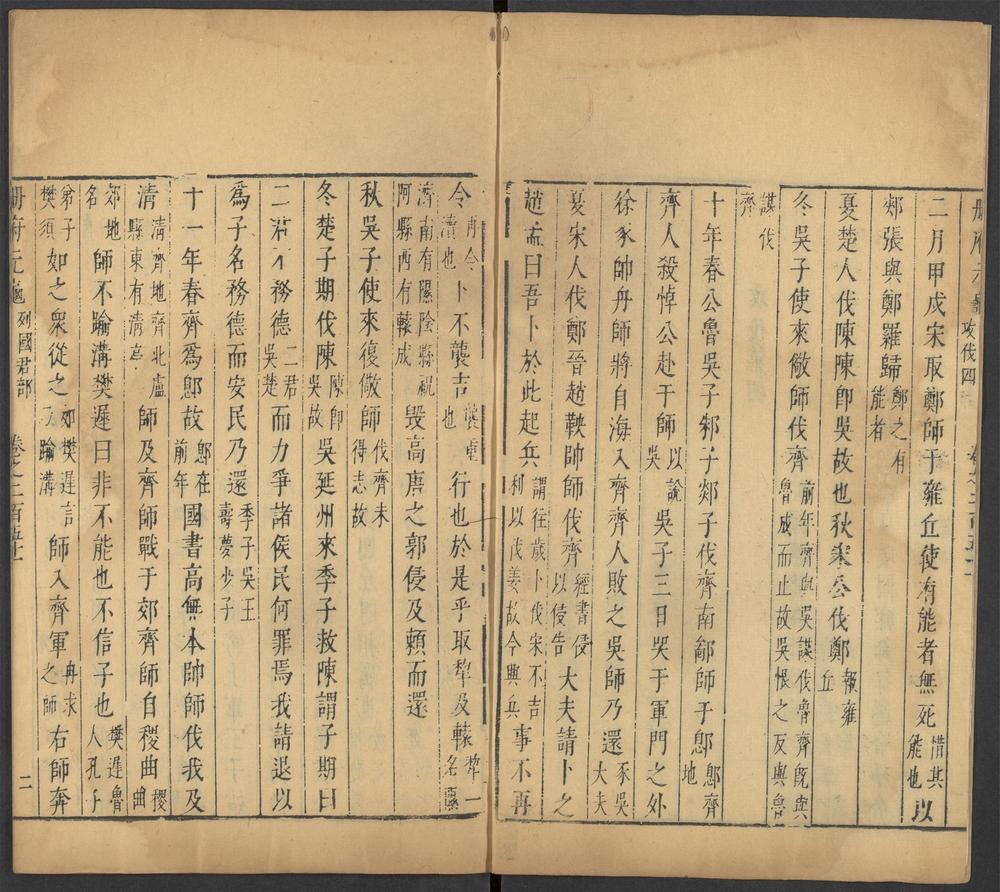 冊府元龜 攻伐四 卷之二百五十一
二月甲戌宋取鄭師于雍丘使有能者無死惜其能也以
郟張與鄭羅歸鄭之有能者
夏楚人伐陳陳即吳故也秋宋公伐鄭報雍丘
冬吳子使來儆師伐齊前年齊與吳謀伐魯齊旣與魯成而止故吳恨之反與魯
謀伐齊
十年春公魯吳子邾子郯子伐齊南鄙師于鄎鄎齊地
齊人殺悼公赴于師以說吳吳子三日哭于軍門之外
徐承帥舟師將自海入齊齊人敗之吳師乃還承吳大夫
夏宋人伐鄭晉趙鞅帥師伐齊經書侵以侵告大夫請卜之
趙孟曰吾卜於此起兵謂往歲卜伐宋不吉利以伐姜故今興兵事不再
令再令瀆也卜不襲吉襲重也行也於是乎取犂及轅犂一名隰
濟南有隰陰縣祝阿縣西有轅城毀高唐之郭侵及賴而還
秋吳子使來復儆師伐齊未得志故
冬楚子期伐陳陳即吳故吳延州來季子救陳謂子期曰
二君不務德二君吳楚而力爭諸侯民何罪焉我請退以
爲子名務德而安民乃還季子吳王壽夢少子
十一年春齊爲鄎故鄎在前年國書高無㔻帥師伐我及
清清齊地齊北盧縣東有清亭師及齊師戰于郊齊師自稷曲稷曲
郊地名師不踰溝樊遲曰非不能也不信子也樊遲魯人孔子
弟子樊須如之衆從之如樊遲言乃踰溝師入齊軍冉求之師右師奔
冊府元龜列國君部 卷之二百五十一 二